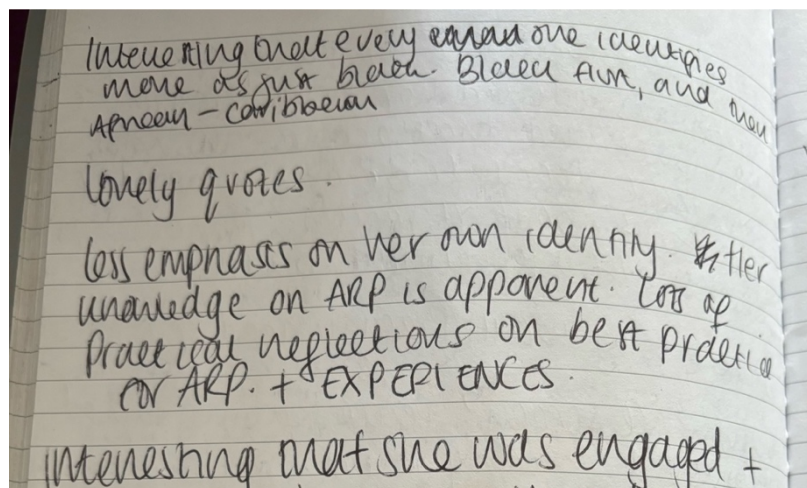 Interesting that every one identifies
more as just black. Black first, and then
African - Caribbean
Lovely quotes.
Less emphasis on her own identity. Her
knowledge on ARP is apparent. Lots of
Practical reflections on best practice
for ARP. + EXPERIENCES.
interesting that she was engaged +